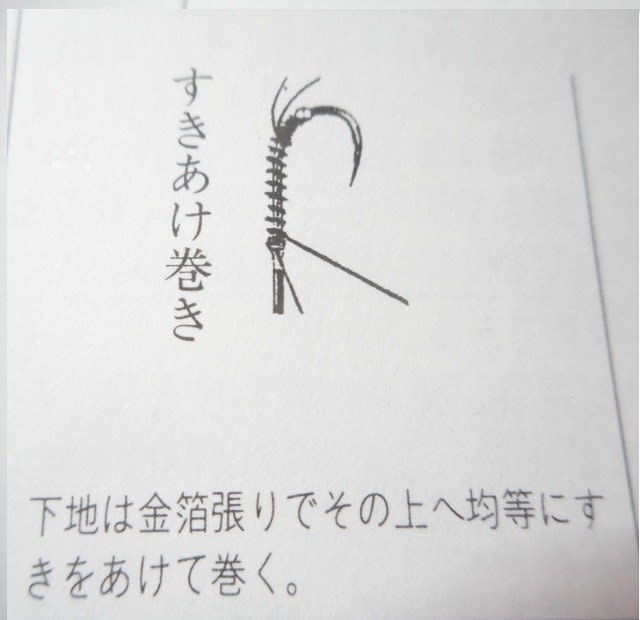 すきあけ巻き
下地は金箔張りでその上へ均等にす
きをあけて巻く。